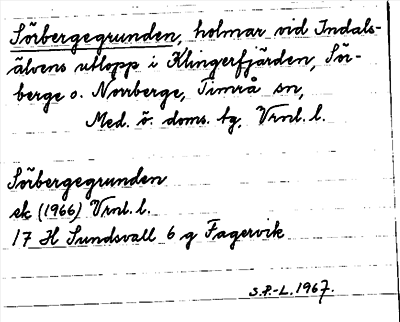 Sörbergegrunden, holmar vid Indals-
älvens utlopp i Klingerfjärden, Sör-
berge o. Norrberge, Timrå sn,
Med. ö. doms. tg, Vrnl. l.
Sörbergegrunden
ek (1966) Vrnl. l.
17 H Sundsvall 6 g Fagervik
S.P.-L. 1967.